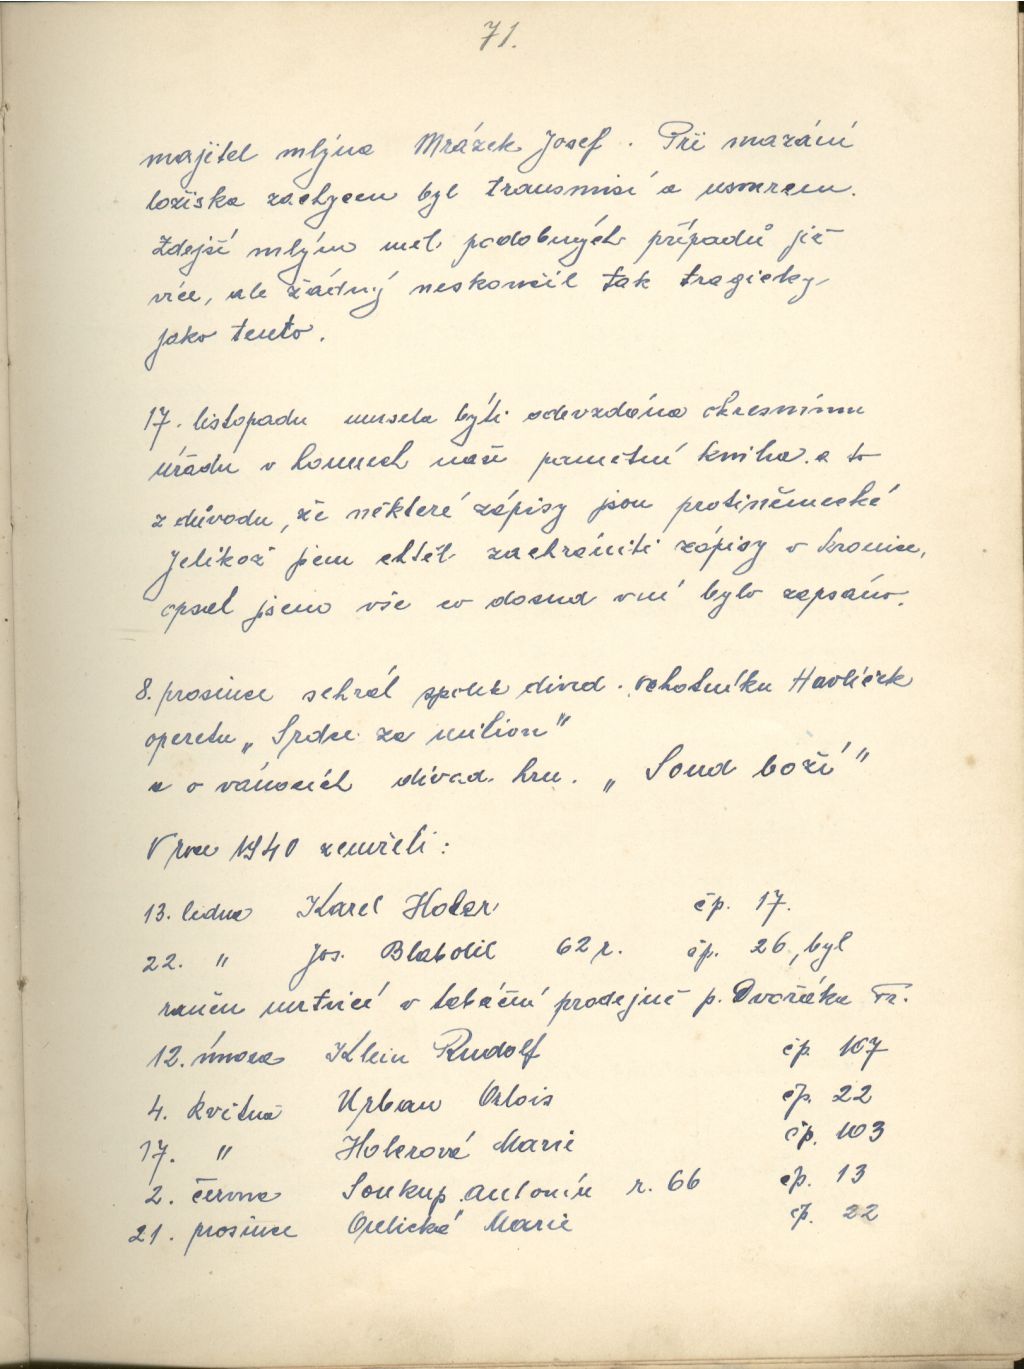 71.
majitel mlýna Mrázek Josef. Při mazání
ložiska zachycen byl transmisí a usmrcen.
Zdejší mlýn měl podobných případů již
více, ale žádný neskončil tak tragicky
jako tento.
17. listopadu musela býti odevzdána okresnímu
úřadu v Lounech naše pamětní kniha a to
z důvodu, že některé zápisy jsou protiněmecké
Jelikož jsem chtěl zachrániti zápisy v kronice,
opsal jsem vše co dosud v ní bylo zapsáno.
8. prosince sehrál spolek divad. ochotníku Havlíček
operetu „Srdce za milion"
a o vánocích divad. hru. „Soud boží"
V roce 1940 zemřeli:
13. ledna Karel Holer čp. 17.
22. " Jos. Blabolil 62 r. čp. 26, byl
raněn mrtvicí v tabáční prodejně p. Dvořáka Fr.
12. února Klein Rudolf čp. 107
4. května Urban Alois čp. 22
17. " Holerová Marie čp. 103
2. června Soukup Antonín r. 66 čp. 13
21. prosince Orlická Marie čp. 22